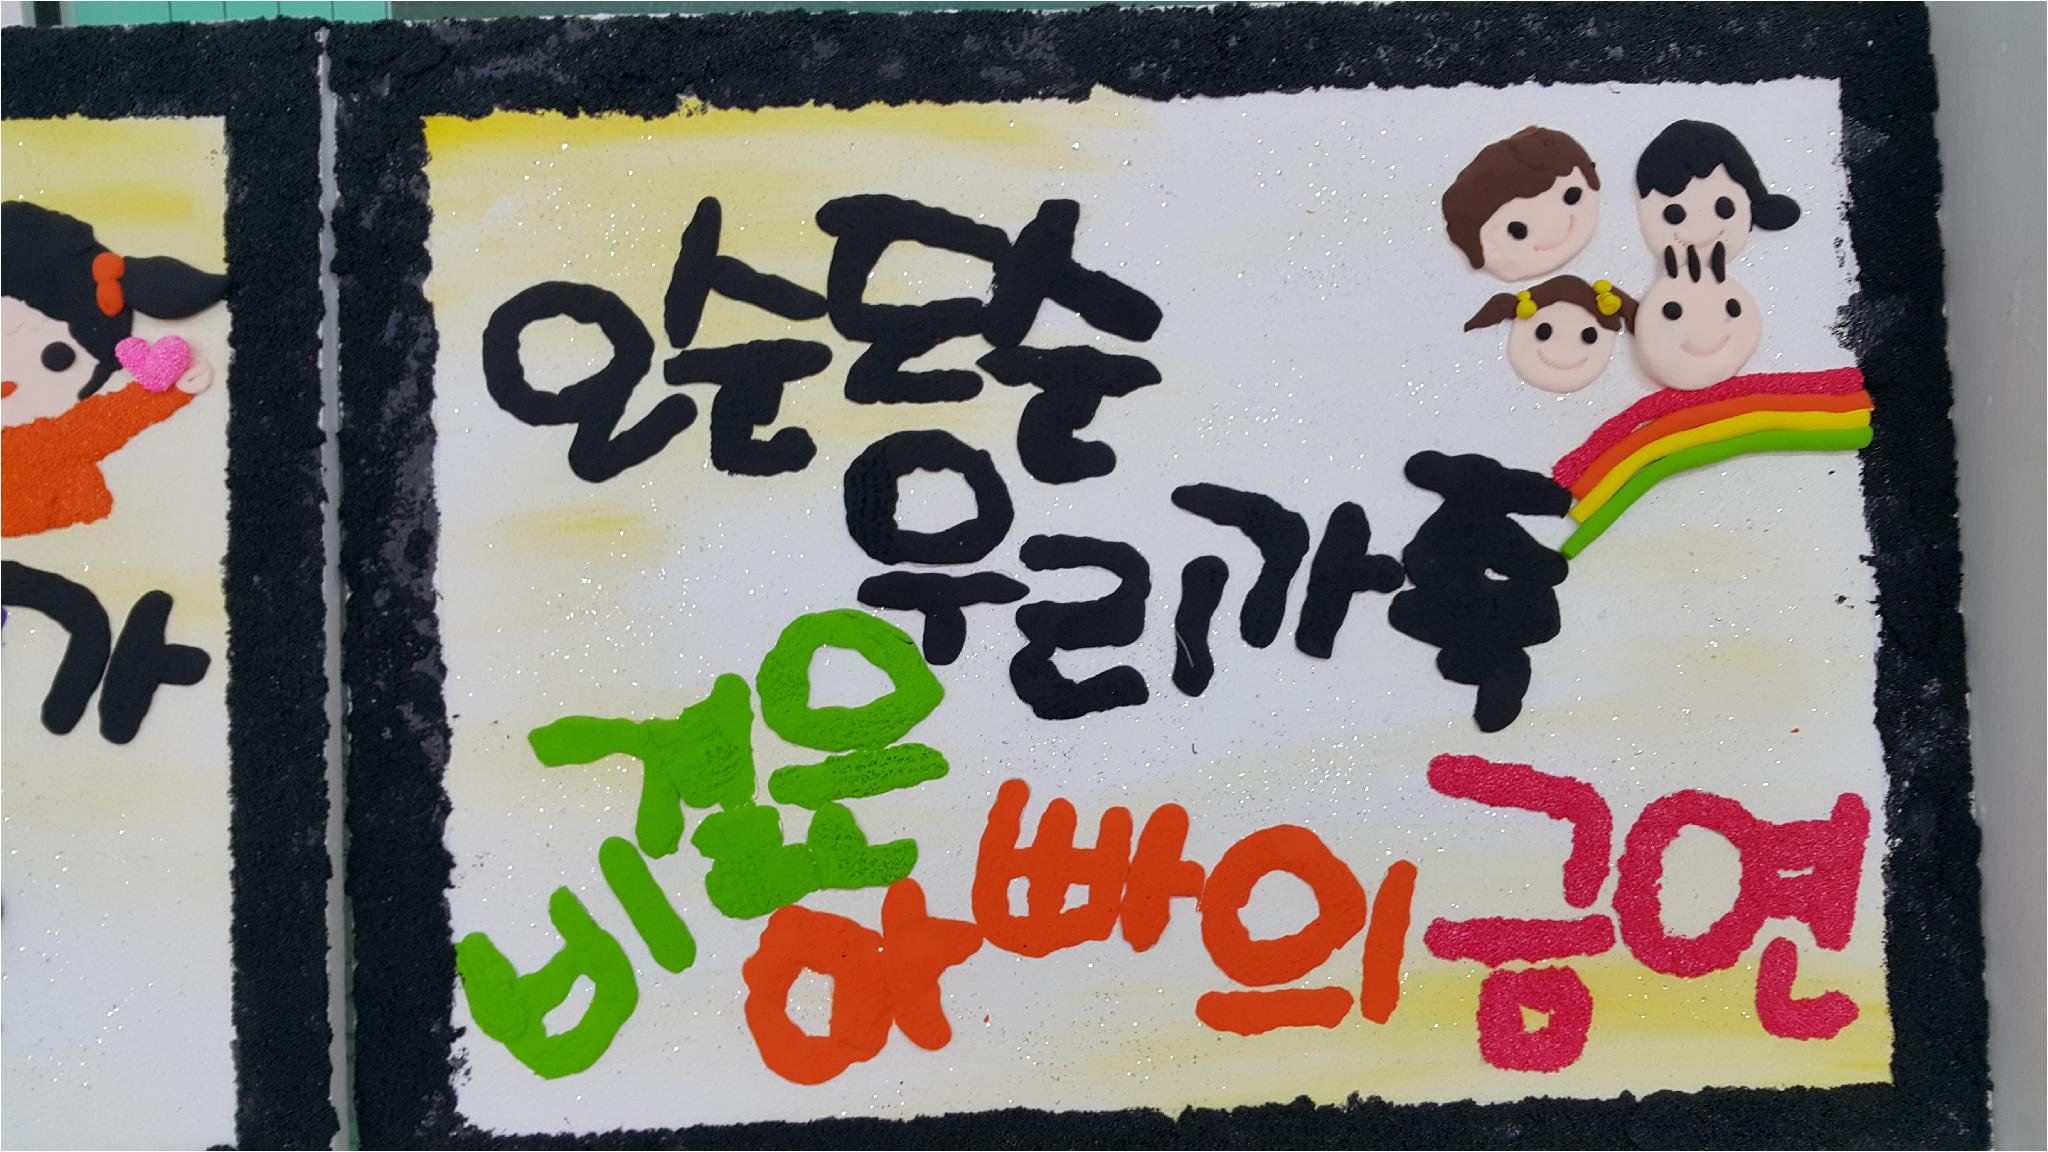 가
오순도순
우리가족
비결은
아빠의 금연